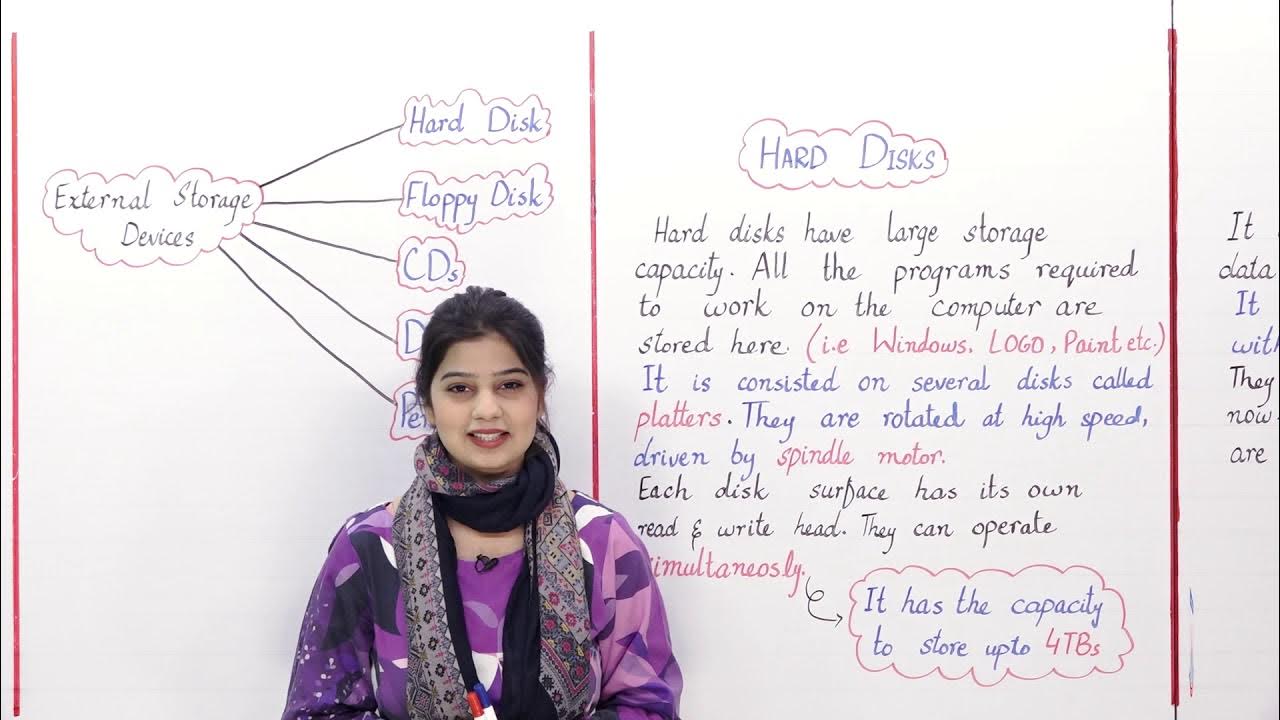 External Storage
Devices
Hard Disk
Floppy Disk
CDs
HARD DISKS
Hard disks have large storage
capacity. All the programs required
to work on the computer are
stored here. (i.e Windows. LOGO, Paint etc.)
It is consisted on several disks called
platters. They are rotated at high speed,
driven by spindle motor.
Each disk surface has its own
read & write head. They can operate
simultaneosly.
It has the capacity
to store upto 4TBs
It
data
It
They
now
are